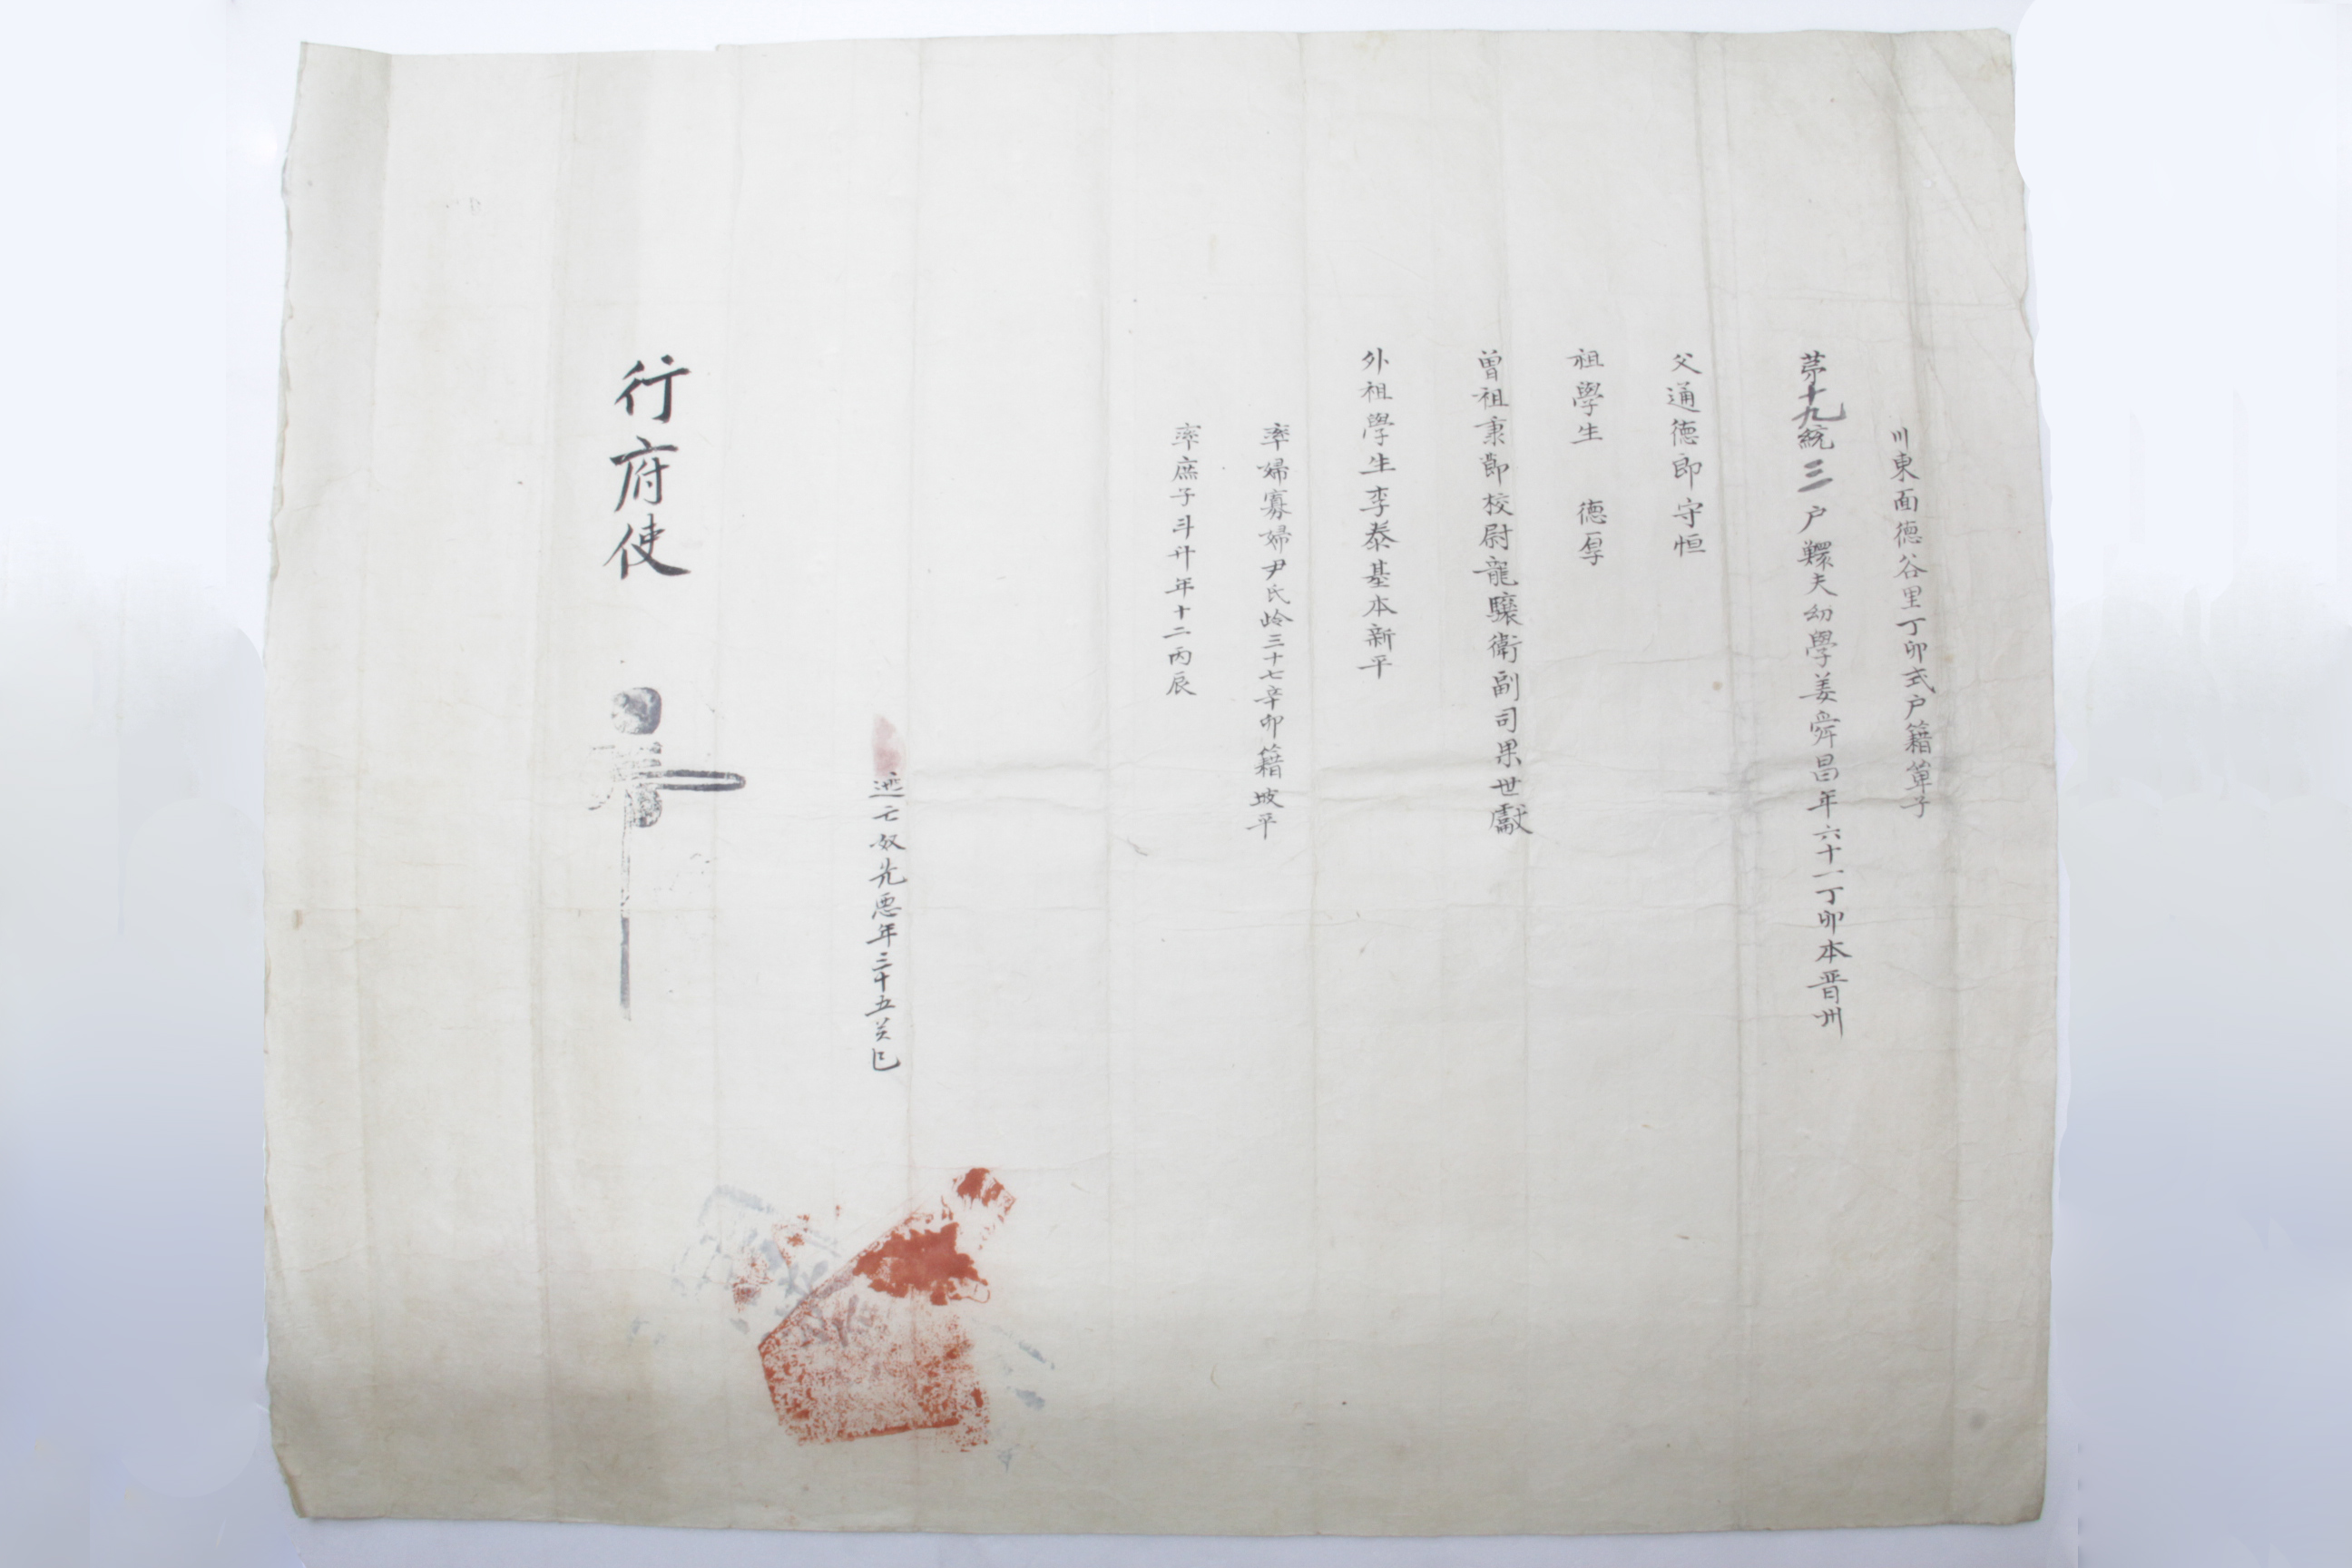 川東面德谷里丁卯式户籍單子
苐十九統三户鰥夫幼學姜舜昌年六十一丁卯本晋州
父通德郎守恒
祖學生 德厚
曾祖秉節校尉龍驤衛副司果世獻
外祖學生李泰基本新平
率婦寡婦尹氏岭三十七辛卯籍坡平
率庶子斗升年十二丙辰
迯亡奴先惡年三十五癸巳
行府使